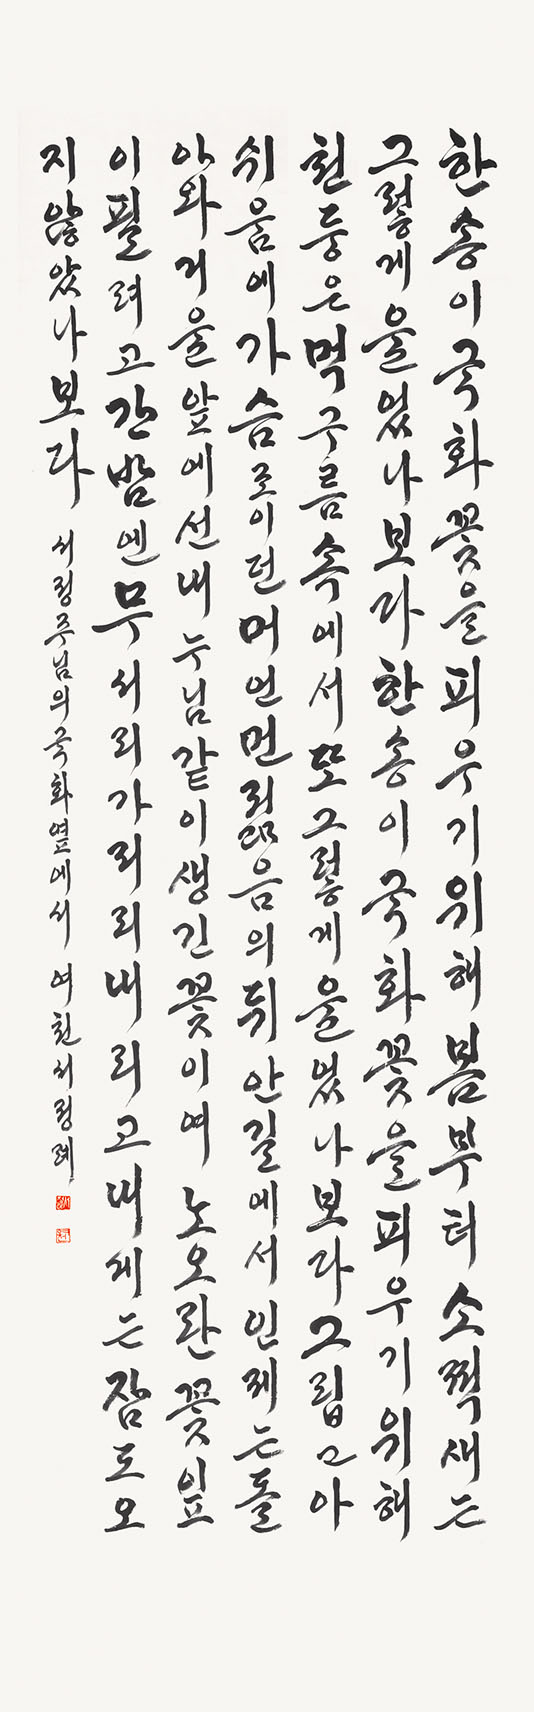 한송이국화꽃을피우기위해봄부터소쩍새는
그렇게울었나보다한송이국화꽃을피우기위해
천둥은먹구름속에서또그렇게울었나보다그립고아
쉬움에가슴조이던머언먼젊음의뒤안길에서인제는돌
아와거울앞에선내누님같이생긴꽃이여노오란꽃잎
이필려고간밤엔무서리가저리내리고내게는잠도오
지않았나보다 서정주님의국화옆에서 여천서정례